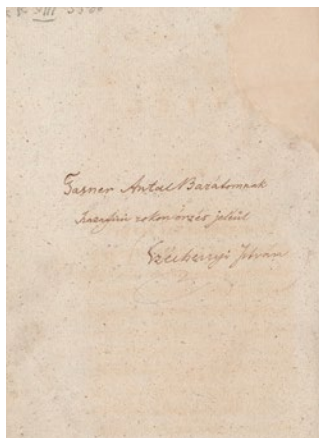 Tasner Antal Barátomnak
Hazafiúi rokonérzés jeléül
Széchenyi István